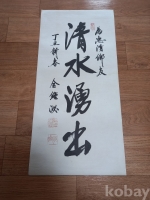 為忠清鄉友
清水湧出
丁丑新春 金鍾泌
kobay